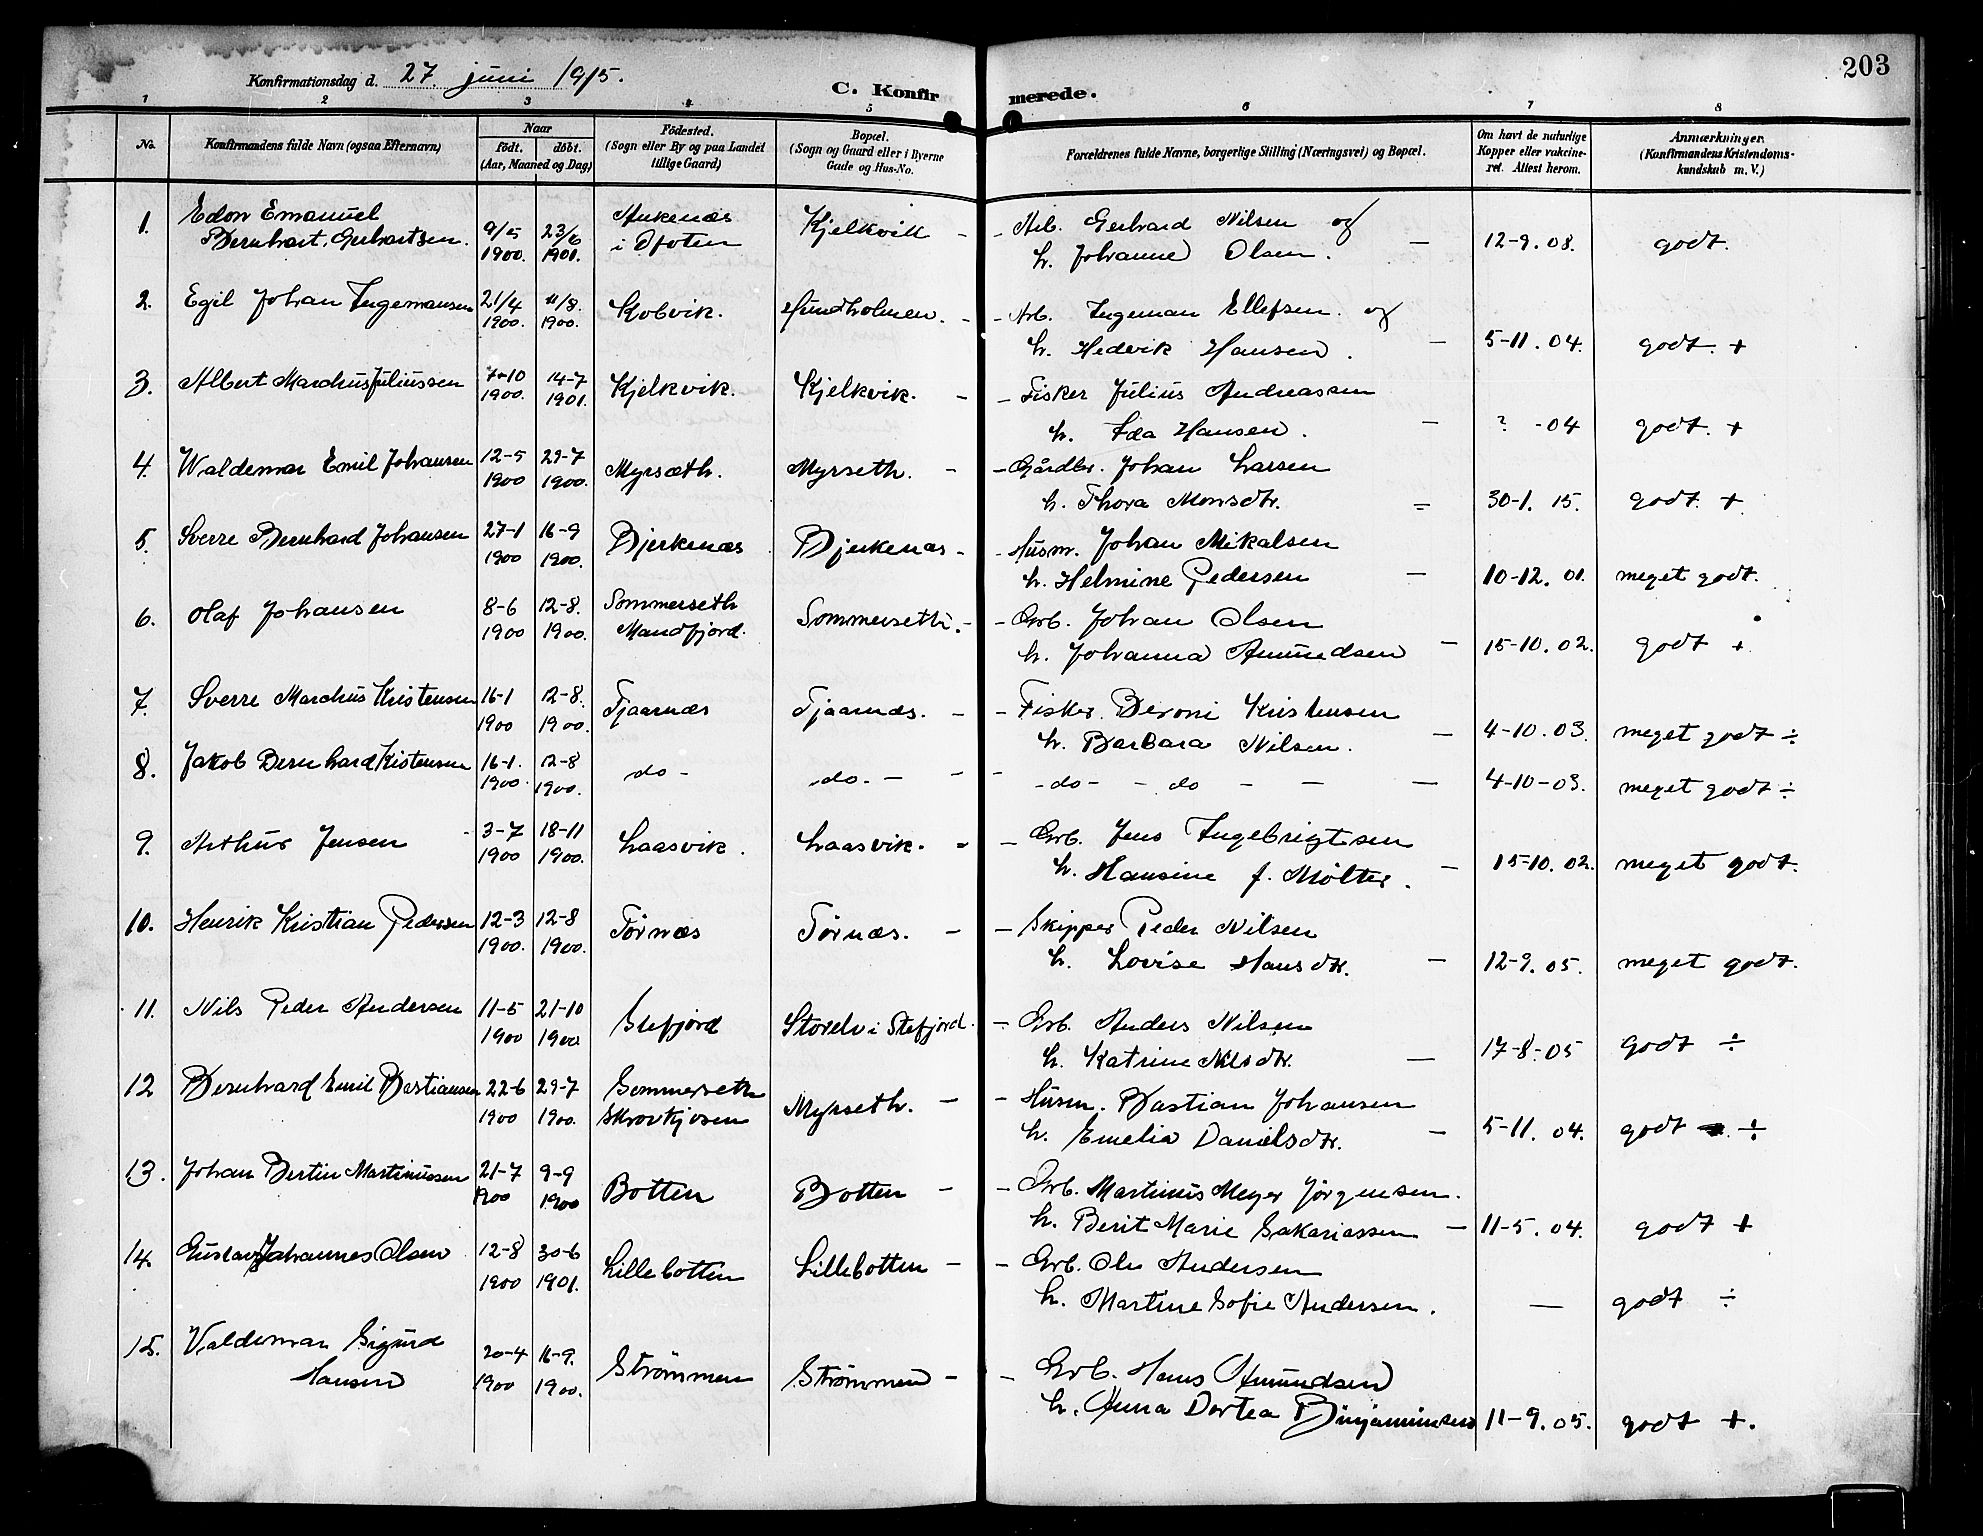 203
Konfirmationsdag d. 27. juni 1915.
C. Konfirmerede.
1 2 3 4 5 6 7 8
No.
Konfirmandens fulde Navn (ogsaa Efternavn)
Naar
födt. döbt.
(Aar, Maaned og Dag)
Födested.
(Sogn eller By og paa Landet
tillige Gaard)
Bopæl.
(Sogn og Gaard eller i Byerne
Gade og Hus-No.
Forældrenes fulde Navne, borgerlige Stilling (Næringsvei) og Bopæl.
Om havt de naturlige
Kopper eller vakcine-
ret. Attest herom.
Anmærkninger.
(Konfirmandens Kristendoms-
kundskab m. V.)
1. Edon Emanuel
Bernhart. Gerhartsen. 9/5 1900. 23/6 1901. Ankenæs
i Ofoten Kjelkvik - - Arb. Gerhard Nilsen og
h. Johanne Olsen. - 12-9. 08. godt.
2. Egil Johan Ingemansen 21/4 1900. 11/8. 1900. Kobvik. Hundholmen. - - Arb. Ingeman Ellefsen. og
h. Hedvik Hansen. - 5-11. 04. godt. +
3. Albert Marchus Juliussen 7-10 1900. 14-7 1901. Kjelkvik. Kjelkvik. - - Fisker Julius Andreassen
h. Ida Hansen. - ? -04 godt. +
4. Waldemar Emil Johansen 12-5 1900 29-7 1900. Myrsæth. Myrseth. - - Gårdbr. Johan Larsen
h. Thora Monsdtr. = 30-1. 15. godt. +
5. Sverre Bernhard Johansen 27-1 1900 16-9 1900. Bjerkenæs Bjerkenæs - - Husm. Johan Mikalsen
h. Helmine Pedersen - 10-12. 01. meget godt.
6. Olaf Johansen 8-6 1900 12-8. 1900. Sommerseth
Mandfjord. Sommerseth. - - Grb. Johan Olsen
h. Johanna Amundsen - 15-10. 02. godt +
7. Sverre Marchus Kristensen 16-1 1900 12-8. 1900. Tjaarnæs Tjaarnæs. - - Fisker. Beroni Kristensen
h. Barbara Nilsen. - 4-10. 03. meget godt ÷
8. Jakob Bernhard Kistensen 16-1. 1900. 12-8 1900. do - do. - - - - do - - do - - - 4-10-03. meget godt ÷
9. Arthur Jensen 3-7 1900 18-11 1900. Laasvik. Laasvik. - - Grb. Jens Ingebrigtsen
h. Hansine f. Mølter. - 15-10. 02. meget godt.
10. Henrik Kristian Pedersen 12-3 1900. 12-8 1900. Tørnæs Tørnæs. - - Skipper Peder Nilsen
h. Lovise Hansdtr. - 12-9. 05. meget godt.
11. Nils Peder Andersen 11-5 1900 21-10 1900 Stefjord Storelv i Stefjord. - Grb. Anders Nilsen
h. Katrine Nilsdtr. - 17-8-05 godt ÷
12 Bernhard Emil Bastiansen 22-6 1900 29-7 1900. Sommerseth
Skrovkjosen Myrseth. - - Husm. Bastian Johansen
h. Emelia Danielsdtr. - 5-11. 04. godt ÷
13. Johan Bertin Martinussen 21-7 1900 9-9 1900 Botten Botten - - Grb. Martinus Meyer Jörgensen.
h. Berit Marie Sakariassen - 11-5. 04. godt +
14. Gustav Johannes Olsen 12-8 1900 30-6 1901. Lillebotten Lillebotten - - Grb. Ole Andersen
h. Martine Sofie Andersen. - godt ÷
15. Valdemar Sigurd
Hansen 20-4 1900 16-9. 1900. Strømmen Strømmen - - Grb. Hans Amundsen
h. Anna Dortea Binjaminsen 11-9. 05. godt +.